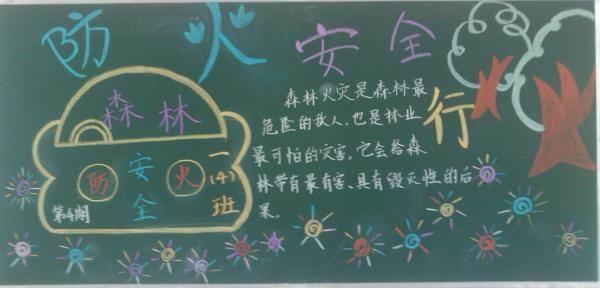 防火安全行
森林
防安全火
一(4)班
第4期
森林火灾是森林最
危险的敌人,也是林业
最可怕的灾害,它会给森
林带有最有害,具有毁灭性的后
果。